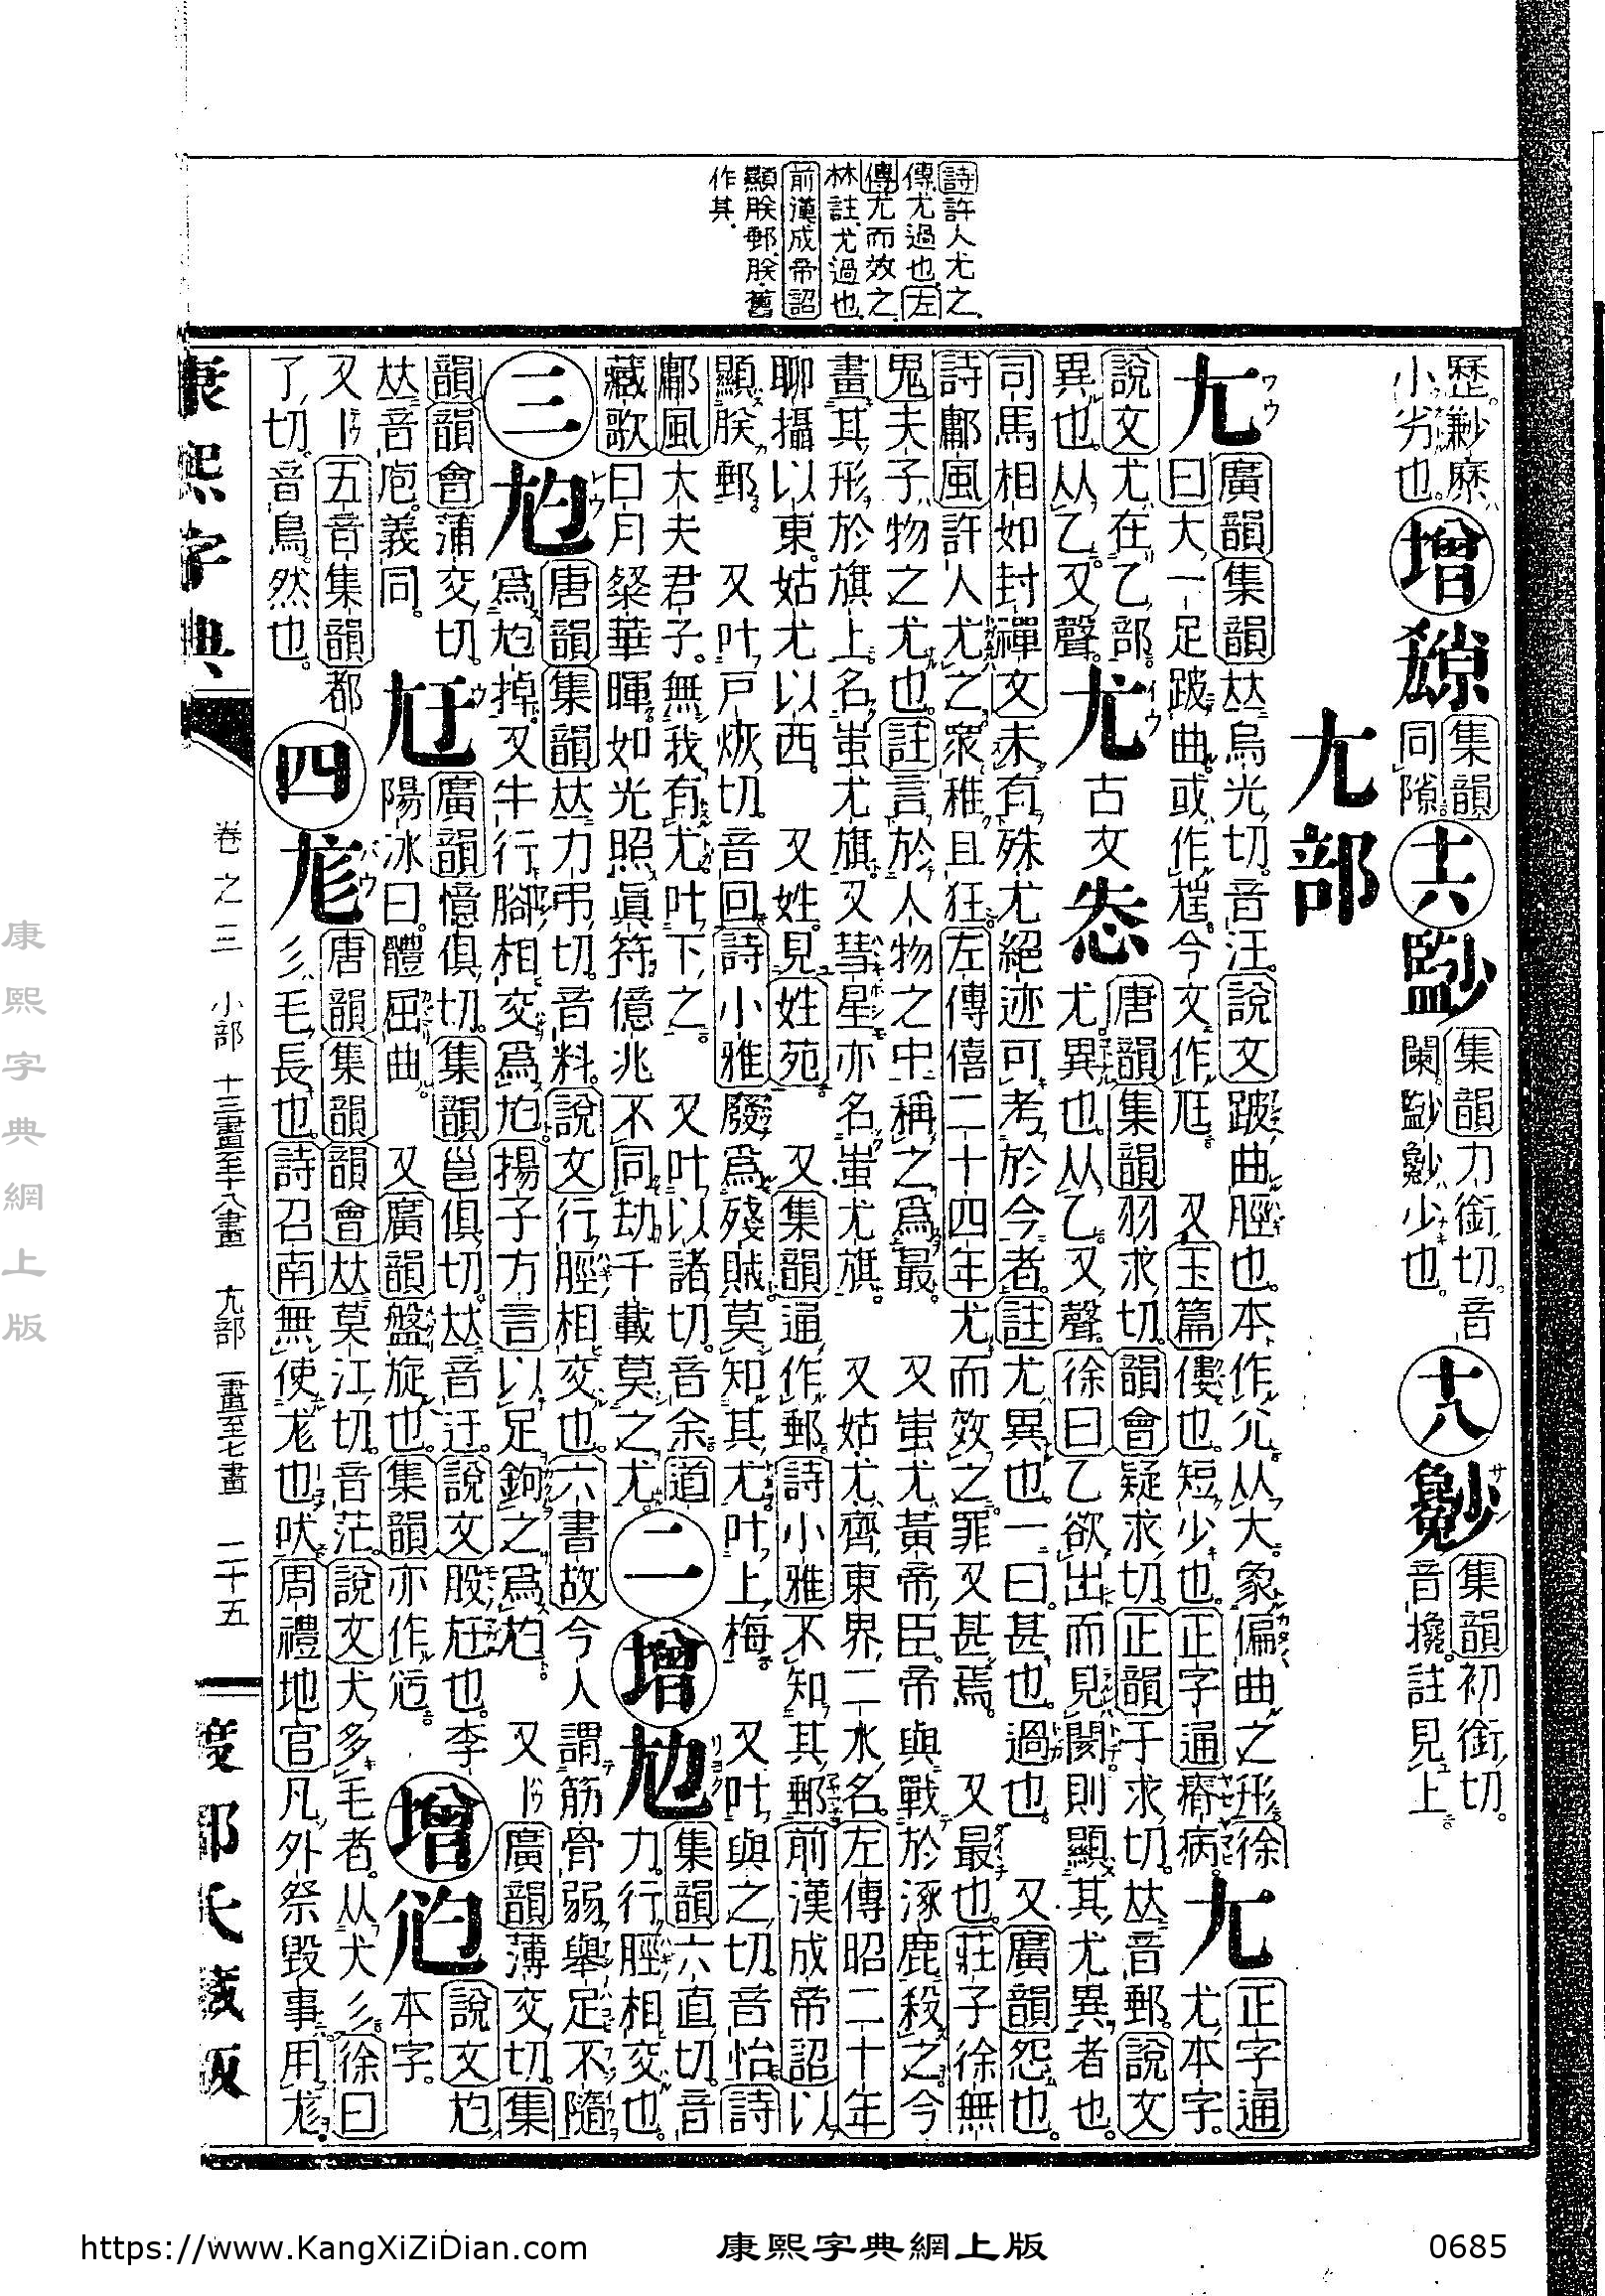 詩許人尤之
傳尤過也左
傳尤而效之
林註尤過也
前漢成帝詔
顯朕郵朕舊
作其
小劣也。
增
集韻
同隙
十六
集韻力銜切。音
少也。
十八
集韻初銜切。
音攙。註見上
尢部
尢
廣韻集韻𠀤烏光切。音汪。說文跛曲脛也。本作尣。从大。象偏曲之形。徐
曰大一足跛曲。或作尪。今文作尫。 又玉篇僂也。短少也。正字通瘠病。
尢
正字通
尤本字。
說文尤在乙部。
異也。从乙。又聲。
尤
古文
唐韻集韻羽求切。韻會疑求切。正韻于求切。𠀤音郵。說文
尤異也。从乙又聲。徐曰乙欲出而見閡。則顯其尤異者也。
司馬相如封禪文未有殊尤絕迹可考於今者。註尤異也。一曰甚也。過也。 又廣韻怨也。
詩鄘風許人尤之。衆穉且狂。左傳僖二十四年尤而效之。罪又甚焉。 又最也。莊子徐無
鬼夫子物之尤也。註言於人物之中稱之爲最。 又蚩尤黃帝臣。帝與戰於涿鹿殺之。今
畫其形於旗上。名蚩尤旗。又彗星亦名蚩尤旗。 又姑尤。齊東界二水名。左傳昭二十年
聊攝以東。姑尤以西。 又姓。見姓苑。 又集韻通作郵。詩小雅不知其郵。前漢成帝詔以
顯朕郵。 又叶戸恢切。音回。詩小雅廢爲殘賊。莫知其尤。叶上梅。 又叶與之切。音怡。詩
鄘風大夫君子。無我有尤。叶下之。 又叶以諸切。音余。道
藏歌曰月粲華暉。如光照眞符。億兆不同劫。千載莫之尤。
二
增
集韻六直切。音
力。行脛相交也。
三
尥
唐韻集韻𠀤力弔切。音料。說文行脛相交也。六書故今人謂筋骨弱。舉足不隨
爲尥掉。又牛行腳相交爲尥。揚子方言以足鉤之爲尥。 又丨廣韻薄交切。集
韻韻會蒲交切。
𠀤音庖。義同。
尫
廣韻憶俱切。集韻邕俱切。𠀤音迂。說文股尫也。李
陽冰曰。體屈曲。 又廣韻盤旋也。集韻亦作
增
說文尥
本字。
又丨五音集韻都
了切。音鳥。然也。
四
尨
唐韻集韻韻會𠀤莫江切。音茫。說文犬多毛者。从犬彡。徐曰
彡毛長也。詩召南無使尨也吠。周禮地官凡外祭毁事用尨。
康熙字典
卷之三 小部 十三畫至十八畫 尢部 一畫至七畫 二十五
渡部氏藏版
康熙字典網上版
https://www.KangXiZiDian.com
康熙字典網上版
0685